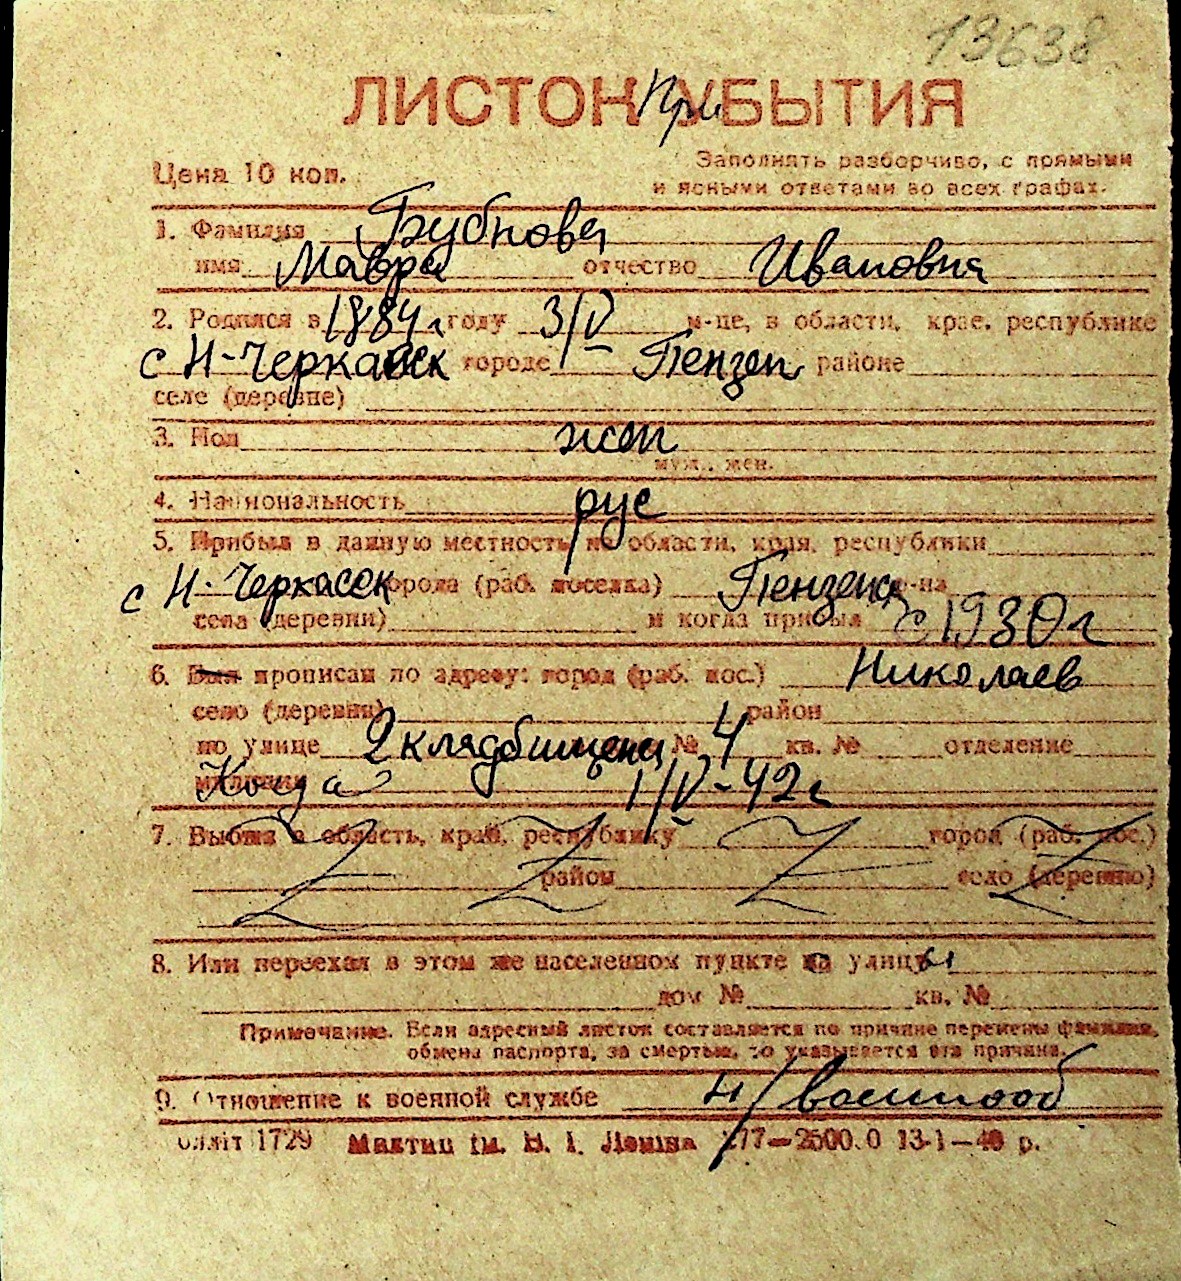 13638
ЛИСТОК При УБЫТИЯ
Цена 10 коп.
Заполнять разборчиво, с прямыми
и ясными ответами во всех графах.
1. Фамилия Бубнова
имя Мавра отчество Ивановна
2. Родился в 1884 г году 3/V м-це, в области, крае, республике
с Н-Черкасск городе Пензен районе
селе (деревне)
3. Пол жен
муж., жен.
4. Национальность рус
5. Прибыл в данную местность из области, края, республики
с Н-Черкасск города (раб. поселка) Пензенск р-на
села (деревни) и когда прибыл с 1930 г
6. Был прописан по адресу: город (раб. пос.) Николаев
село (деревня) район
по улице 2 клядбищена № 4 кв. № отделение
милиции Когда 1/V-42 г
7. Выбыл в область, край, республику город (раб. пос.)
район село (деревню)
8. Или переехал в этом же населенном пункте на улицу
дом № кв. №
Примечание. Если адресный листок составляется по причине перемены фамилии,
обмена паспорта, за смертью, то указывается эта причина.
9. Отношение к военной службе н/военнооб
1729 Миктип ім. В. І. Леніна 277—2500.0 13-1—40 р.